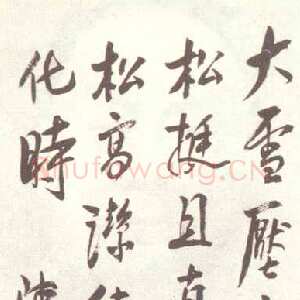 大雪壓
松挺且直
松高潔
化時
shufawang.CN